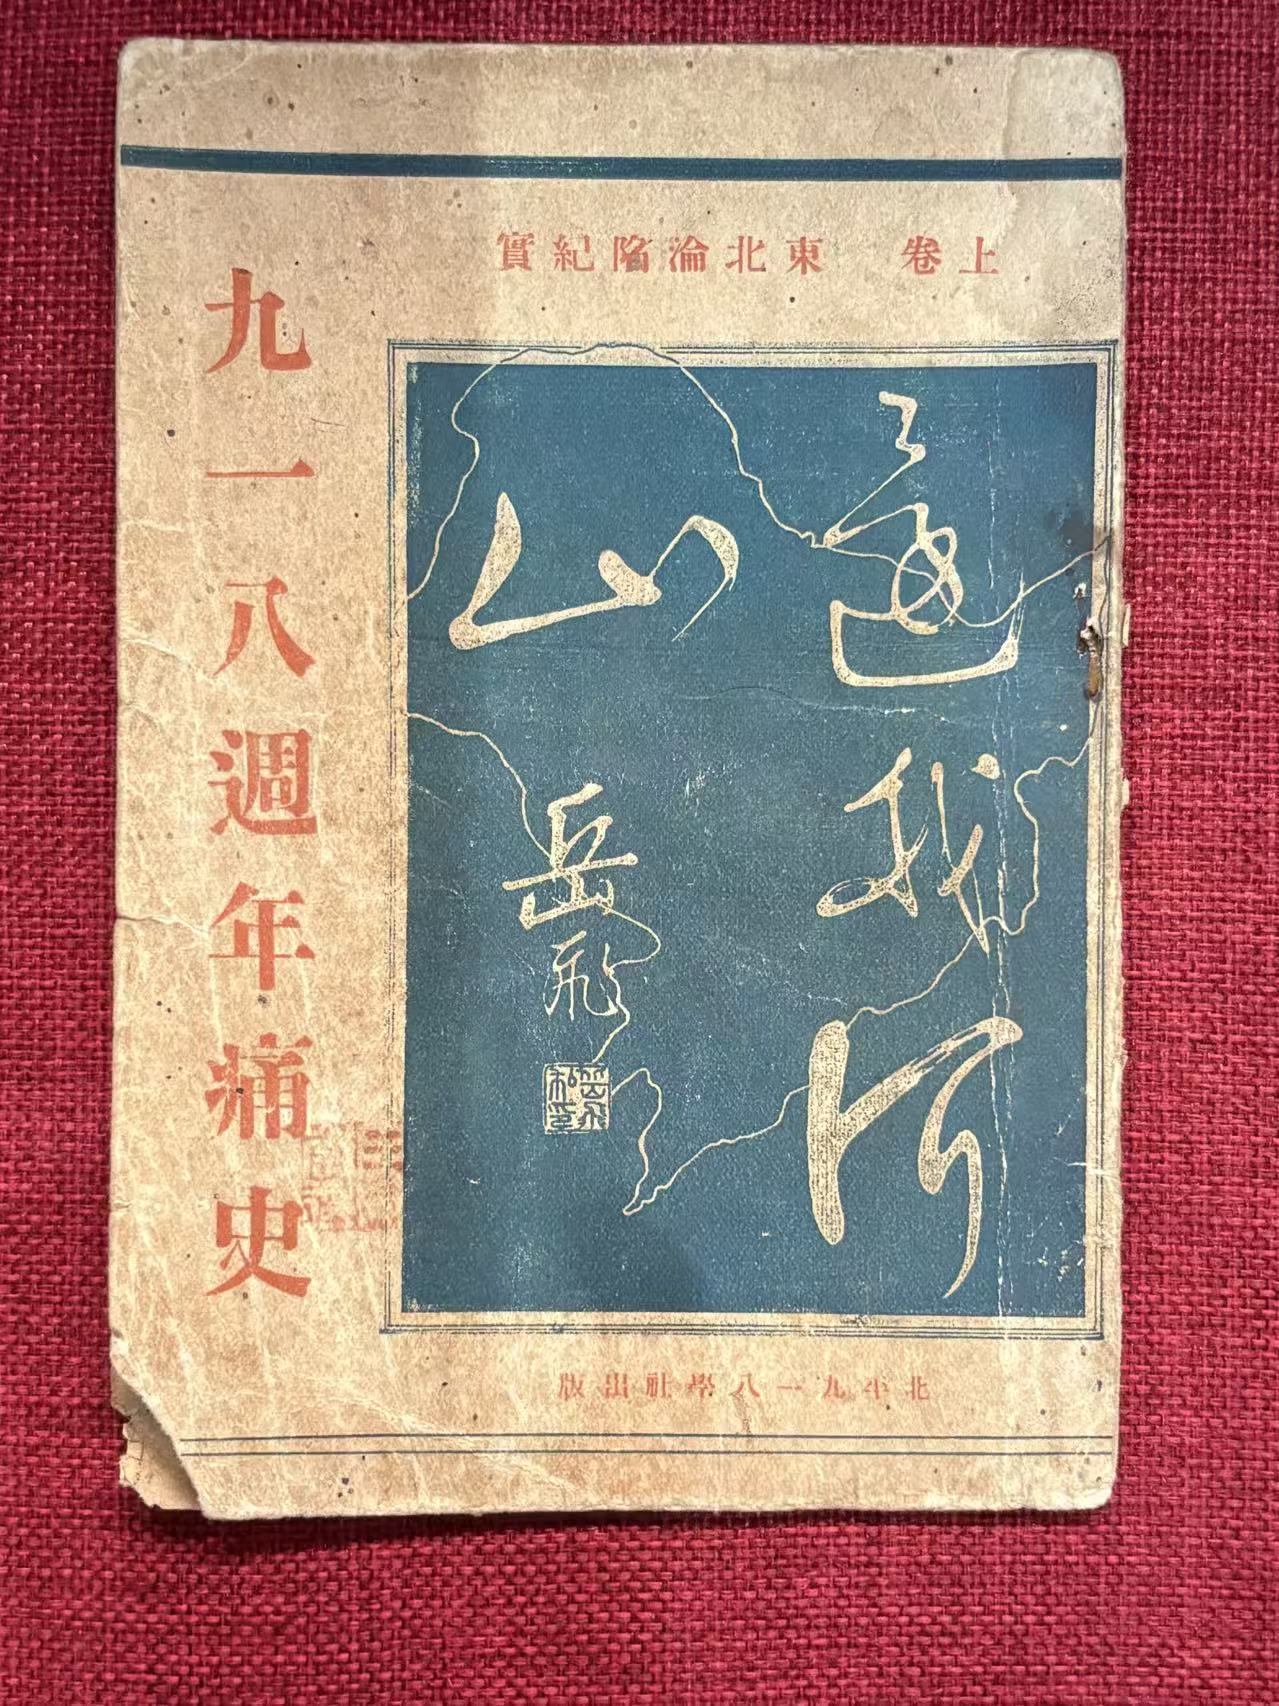 上卷　東北淪陷紀實
九一八週年痛史
還我河
山
岳飛
岳飛私印
北平九一八學社出版